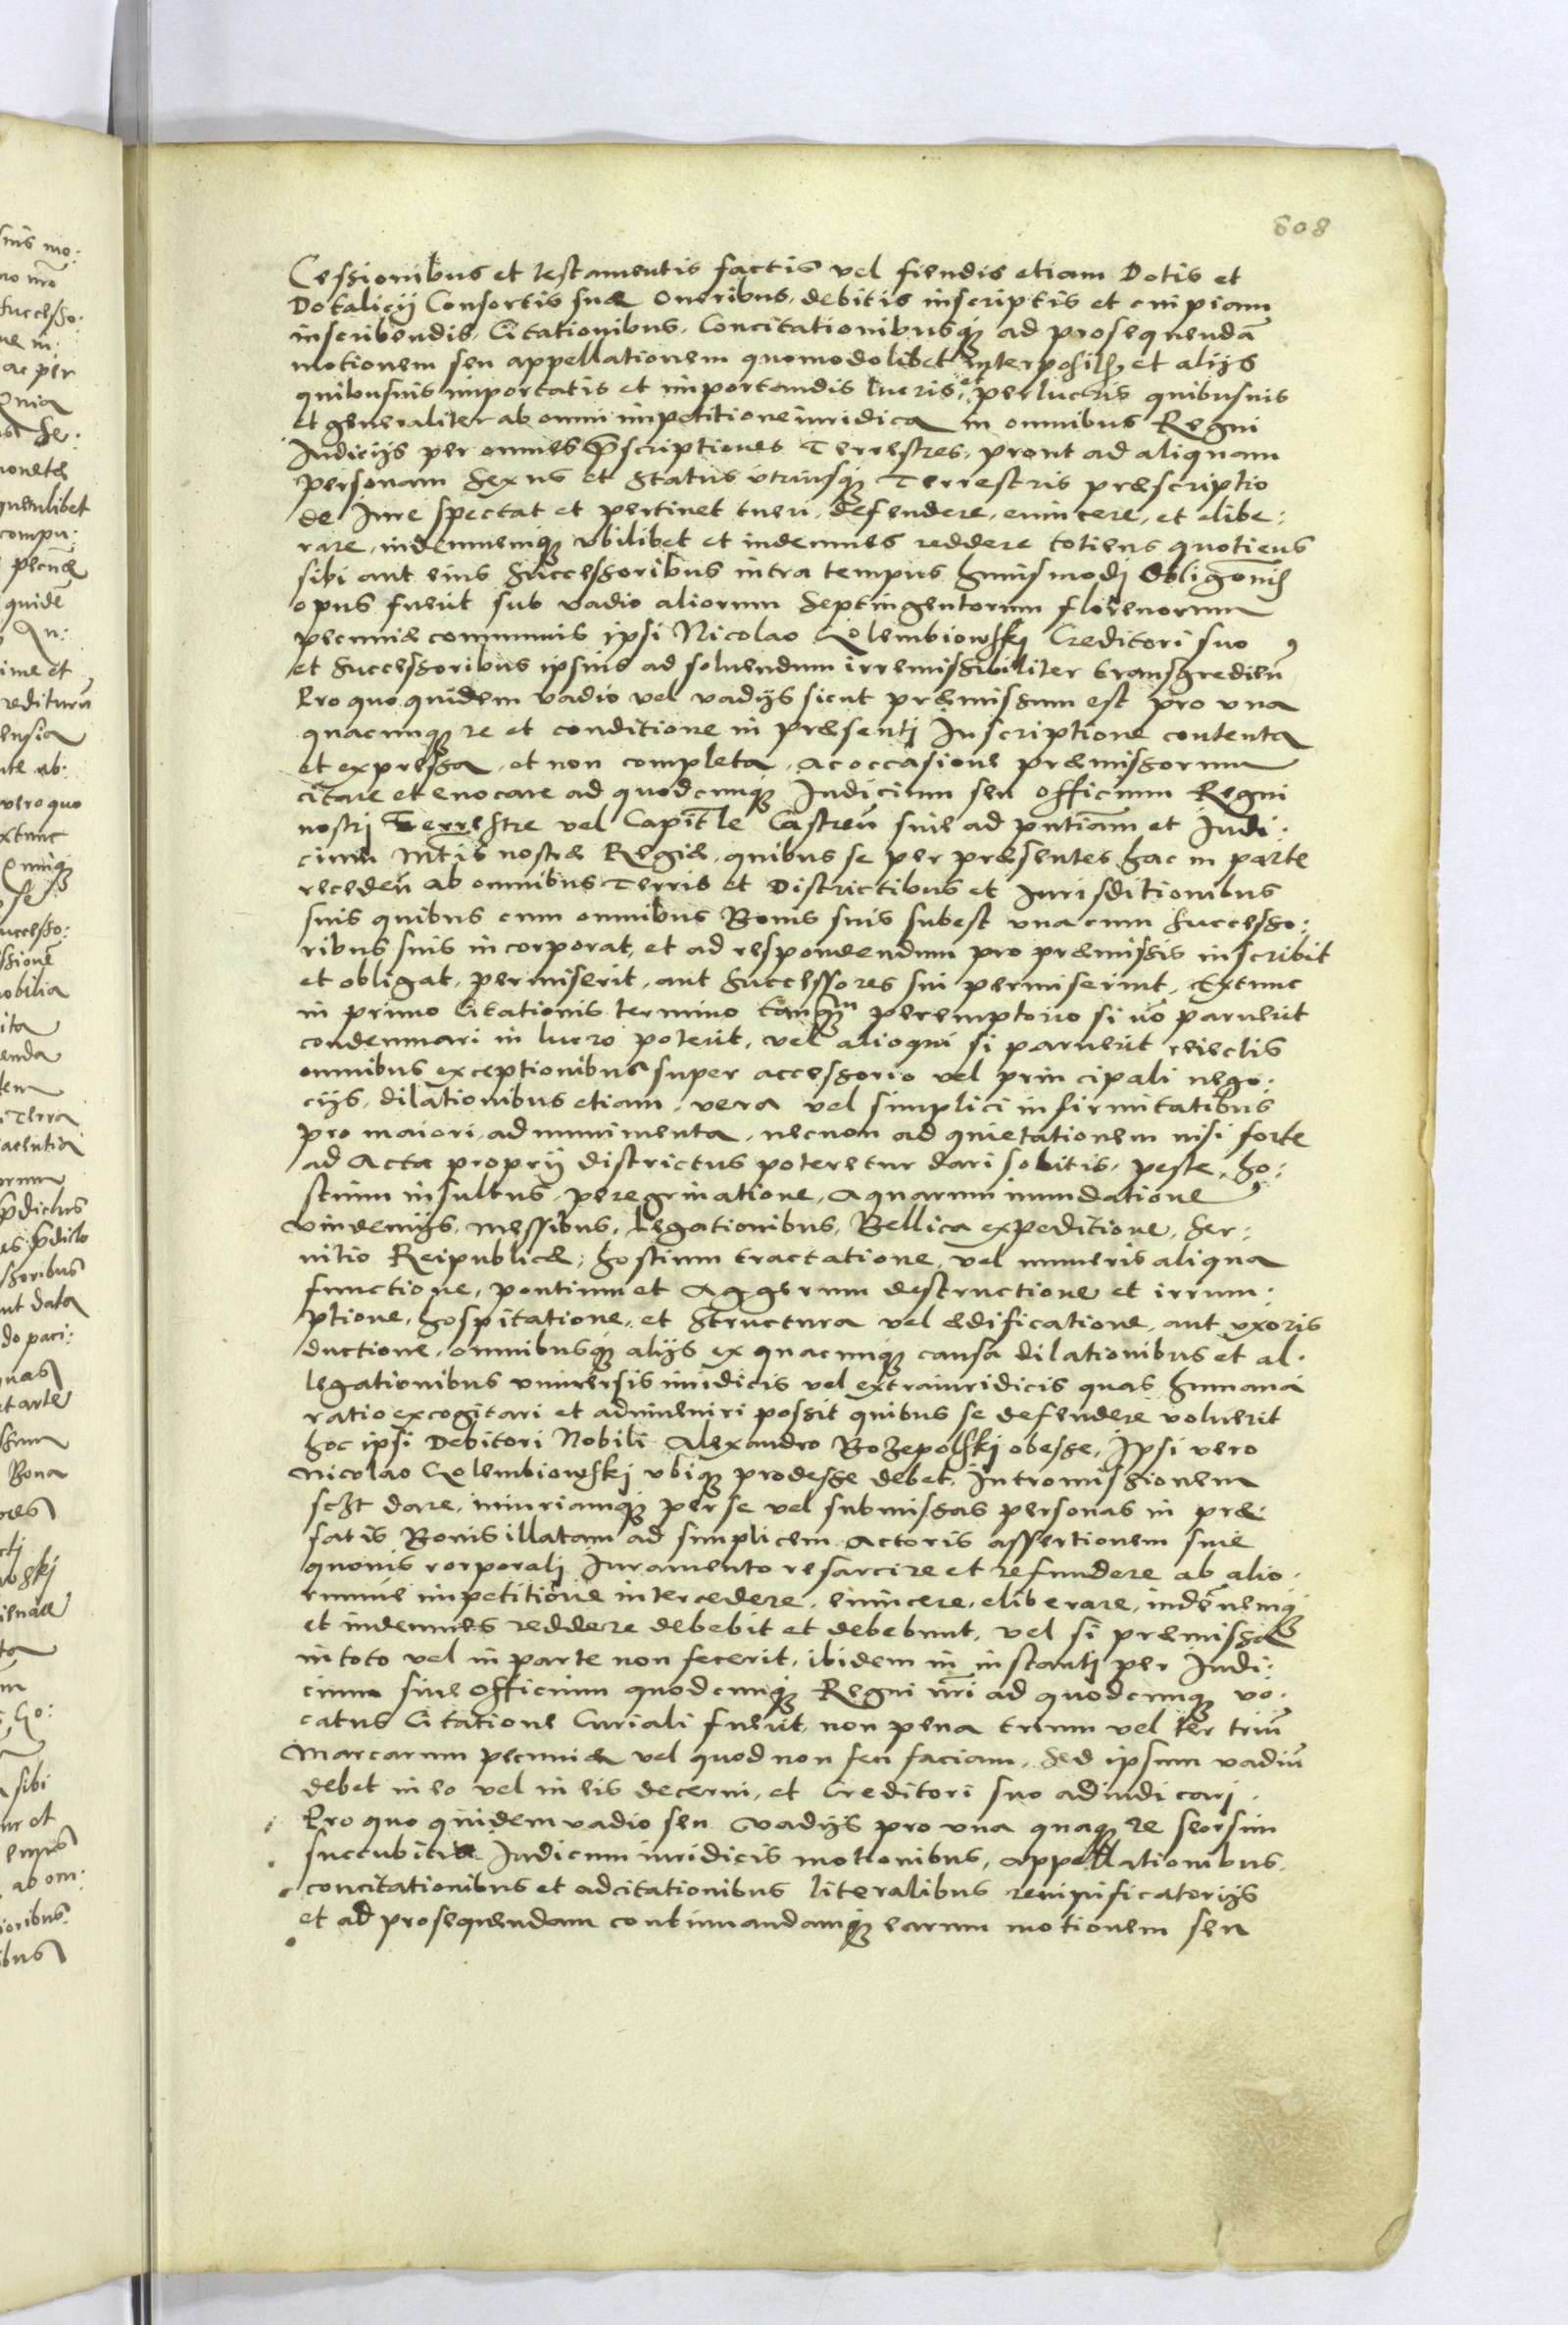 808
Cessionibus et testamentis factis vel fiendis etiam Dotis et
Dotalicij Consortis suæ Oneribus, debitis inscriptis et cuipiam
inscribendis, Citationibus, Concitationibusq; ad prosequendã
motionem seu appellationem quomodolibet interposit; et alijs
quibusuis importatis et importandis lucris, et perlucris quibusuis
et generaliter ab omni impetitione iuridica in omnibus Regni
Iudicijs per omnes p̃scriptiones Terrestres, prout ad aliquam
personam Sexus et Status vtriusq; Terrestris præscriptio
de Iure spectat et pertinet tueri, defendere, euincere, et elibe:
rare, indemnemq; vbilibet et indemnes reddere totiens quotiens
sibi aut eius Successoribus intra tempus huiusmodj Obligõnis
opus fuerit sub vadio aliorum Septingentorum florenorum
pecuniæ communis ipsi Nicolao Golembiowskj Creditori suo
et Successoribus ipsius ad soluendum irremissibiliter transgredieñ
Pro quo quidem vadio vel vadijs sicut præmissum est pro vna
quacunq; re et conditione in præsentj Inscriptione contenta
et expressa, et non completa, ac occasione præmissorum
citare et euocare ad quodcunq; Iudicium seu Officium Regni
nostrj Terrestre vel Capitle Castreñ siue ad pntiam et Iudi:
cium Mtis nostræ Regiæ, quibus se per præsentes hac in parte
recedeñ ab omnibus Terris et Districtibus et Iurisditionibus
suis quibus cum omnibus Bonis suis subest vna cum Successo:
ribus suis incorporat, et ad respondendum pro præmissis inscribit
et obligat, permiserit, aut Successores sui permiserint, Extunc
in primo Citationis termino tanq;m peremptorio si nõ paruerit
condemnari in lucro poterit, vel alioqui si paruerit reiectis
omnibus exceptionibus super accessorio vel principali nego:
cijs, dilationibus etiam, vera vel simplici infirmitatibus
pro maiori, ad munimenta, necnon ad quietationem nisi forte
ad Acta proprij districtus poteretur dari solutis, peste, ho:
stium insultus, peregrinatione, aquarum inundatione,
vindemijs, messibus, Legationibus, Bellica expeditione, Ser:
uitio Reipublicæ, hostium tractatione, vel muneris aliqua
functione, pontium et Aggerum destructione et irrum:
ptione, hospitatione, et Structura vel ædificatione, aut vxoris
ductione, omnibusq; alijs ex quacunq; causa dilationibus et al:
legationibus vniuersis iuridicis vel extraiuridicis quas humana
ratio excogitari et adinueniri possit quibus se defendere voluerit
hoc ipsi Debitori Nobili Alexandro Bozepolskj obesse, Ipsi vero
Nicolao Golembiowskj vbiq; prodesse debet. Intromissionem
sczt dare, iniuriamq; per se vel submissas personas in præ:
fatis Bonis illatam ad simplicem Actoris assertionem sine
quouis corporalj Iuramento resarcire et refundere ab alio:
rumue impetitione intercedere, euincere, eliberare, indẽnemq;
et indemnes reddere debebit et debebunt, vel si præmissa
in toto vel in parte non fecerit, ibidem in instantj per Iudi:
cium siue Officium quodcunq; Regni nrĩ ad quodcunq; vo:
catus Citatione Curiali fuerit, non pena trium vel ter triũ
Marcarum pecuniæ vel quod non feci faciam, Sed ipsum vadiũ
debet in eo vel in eis decerni, et Creditori suo adiudicarj.
Pro quo quidem vadio seu vadijs pro vna quaq; re seorsim
succubitæ Iudicum iuridicis motionibus, appellationibus,
concitationibus et adcitationibus literalibus reuipificatorijs
et ad prosequendam continuandamq; earum motionem seu